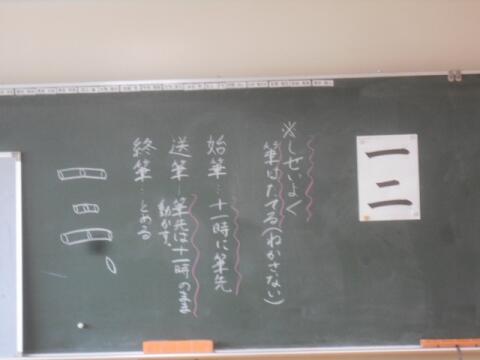 一二
※しせいよく
筆はたてる(ねかさない)
始筆…十一時に筆先
送筆…筆先は十一時のまま
動かす。
終筆…とめる